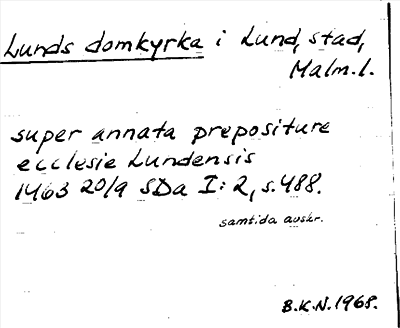 Lunds domkyrka i Lund, stad,
Malm.l.
super annata prepositure
ecclesie Lundensis
1463 20/9 SDa I:2, s.488.
samtida avskr.
B.K.N.1968.